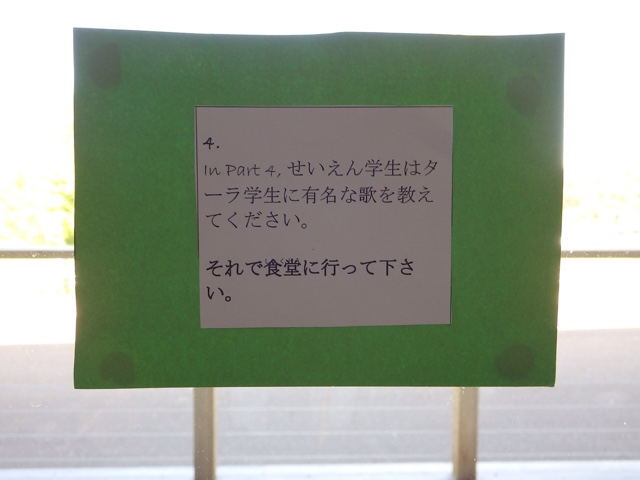 4.
In Part 4, せいえん学生はタ
ーラ学生に有名な歌を教え
てください。
それで食堂に行って下さ
い。